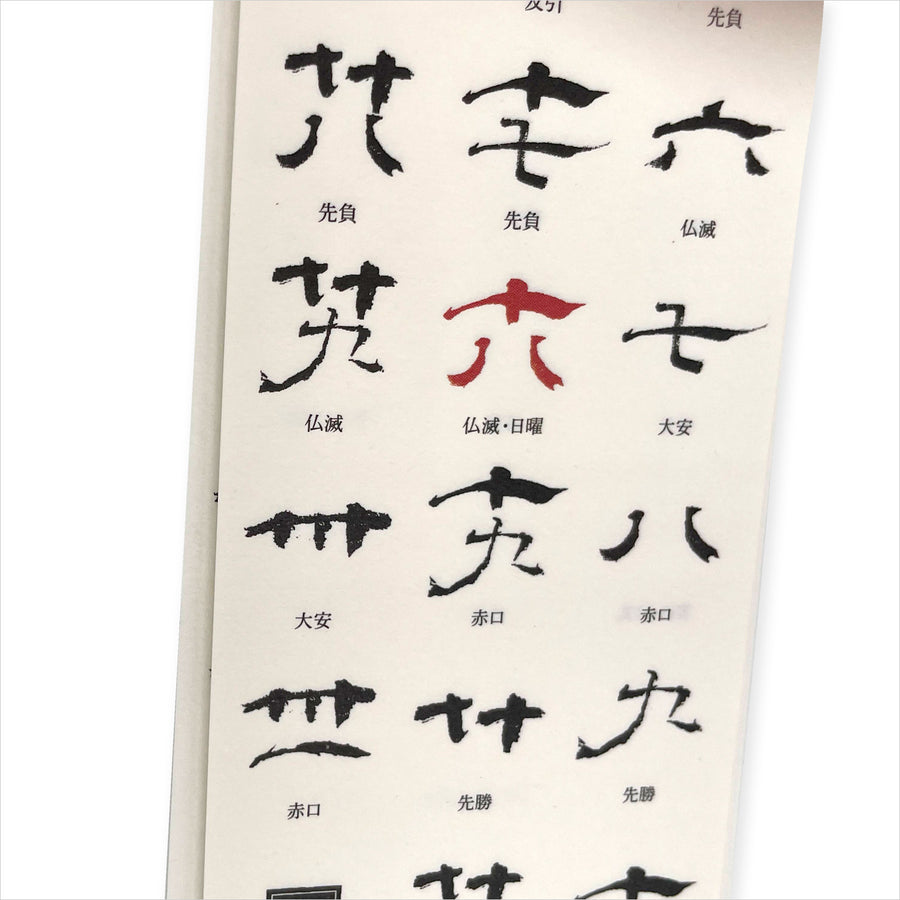 先負
六
仏滅
七
大安
八
赤口
九
先勝
十
十七
先負
十八
仏滅・日曜
十九
赤口
廿
先勝
廿
廿八
先負
廿九
仏滅
卅
大安
卅一
赤口